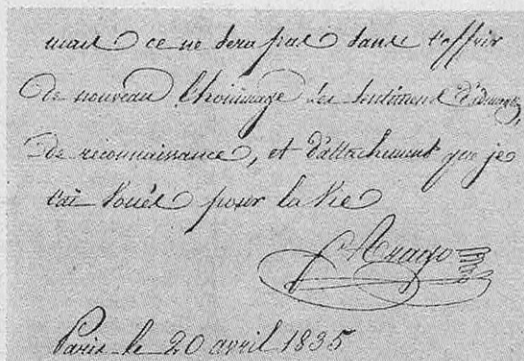 mais ce ne sera pas sans t'offrir
de nouveau l'hommage des sentimens
de reconnaissance, et d'attachement que je
t'ai voués pour la vie
Arago
Paris le 20 avril 1835